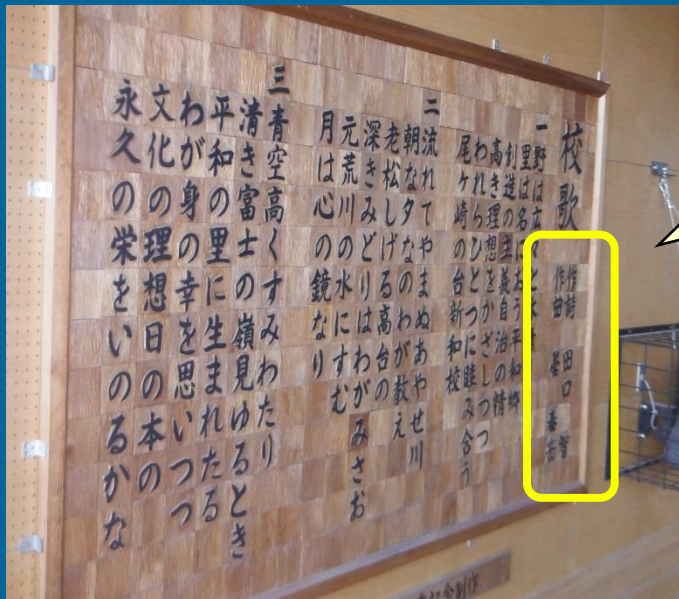 校歌
作詩 田口
作曲
一 野は広々と水
里は名におう平和郷
創造の主義自治の精
高き理想をかざしつつ
われらひとつに睦み合う
尾ヶ崎の台新和校
二 流れてやまぬあやせ川
朝な夕なのわが教え
老松しげる高台の
深きみどりはわがみさお
元荒川の水にすむ
月は心の鏡なり
三 青空高くすみわたり
清き富士の嶺見ゆるとき
平和の里に生まれたる
わが身の幸を思いつつ
文化の理想日の本の
永久の栄をいのるかな
記念制作